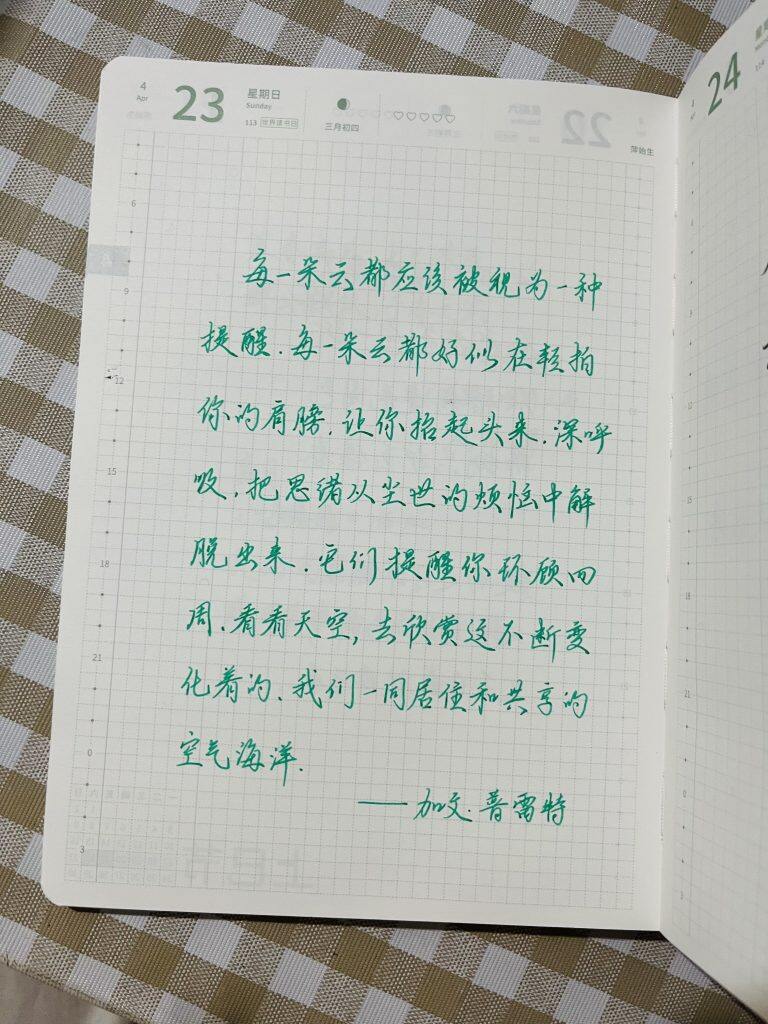 4
Apr
23
星期日
Sunday
113 世界读书日
三月初四
萍始生
6
9
12
15
18
21
0
3
每一朵云都应该被视为一种
提醒.每一朵云都好似在轻拍
你的肩膀.让你抬起头来.深呼
吸.把思绪从尘世的烦恼中解
脱出来.它们提醒你环顾四
周.看看天空,去欣赏这不断变
化着的.我们一同居住和共享的
空气海洋.
——加文.普雷特
4
Apr
24
114
6
9
12
15
18
21
0
3